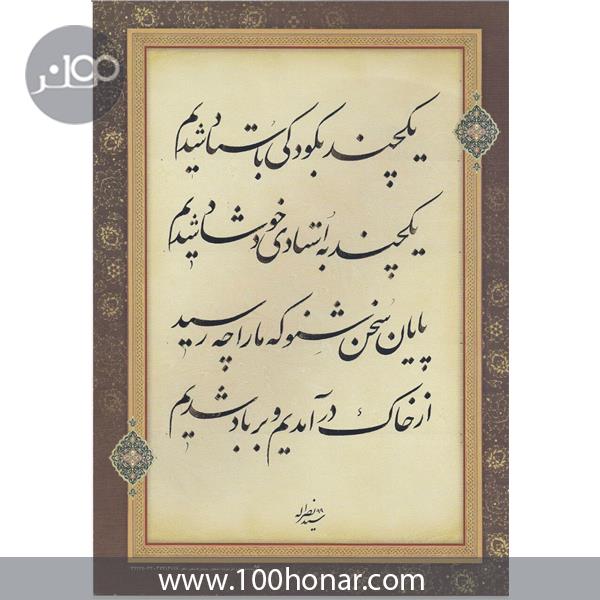 ۱۰۰هنر
یکچند بکودکی باستاد شدیم
یکچند به استادی خود شاد شدیم
پایان سخن شنو که ما را چه رسید
از خاک در آمدیم و بر باد شدیم
سید نصراله ۸۹
www.100honar.com